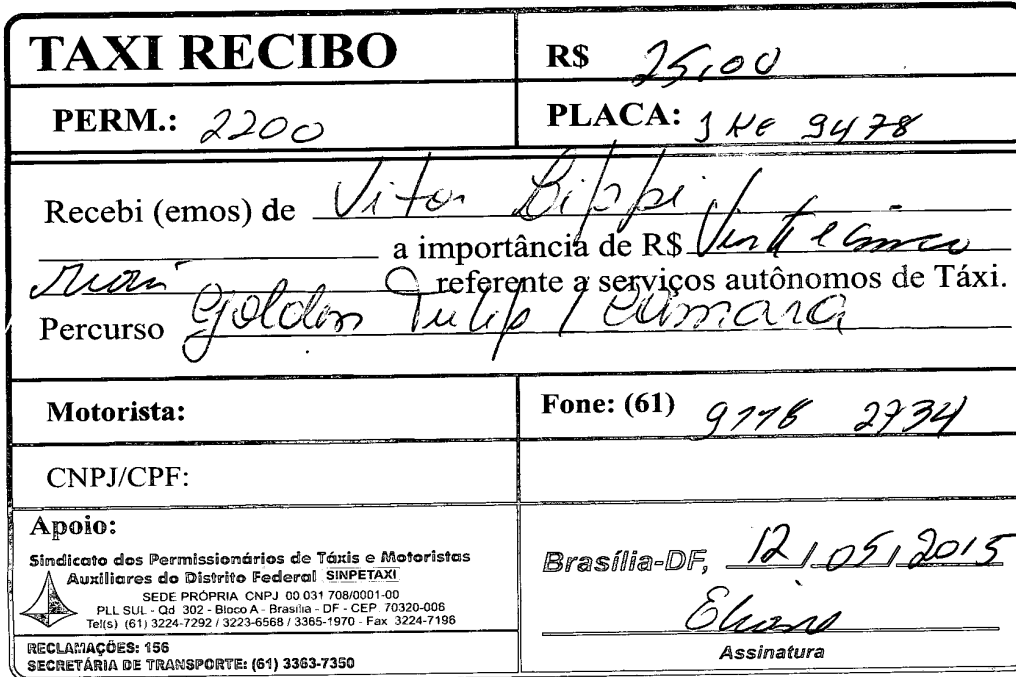 TAXI RECIBO
R$ 25,00
PERM.: 2200
PLACA: JKE 9478
Recebi (emos) de Vitor Lippi
a importância de R$ Vinte e cinco
reais referente a serviços autônomos de Táxi.
Percurso Golden Tulip / Câmara
Motorista:
Fone: (61) 9778 2734
CNPJ/CPF:
Apoio:
Sindicato dos Permissionários de Táxis e Motoristas
Auxiliares do Distrito Federal SINPETAXI
SEDE PRÓPRIA CNPJ 00 031 708/0001-00
PLL SUL - Qd 302 - Bloco A - Brasília - DF - CEP 70320-006
Tel(s) (61) 3224-7292 / 3223-6568 / 3365-1970 - Fax 3224-7196
RECLAMAÇÕES: 156
SECRETÁRIA DE TRANSPORTE: (61) 3363-7350
Brasília-DF, 12/05/2015
Assinatura